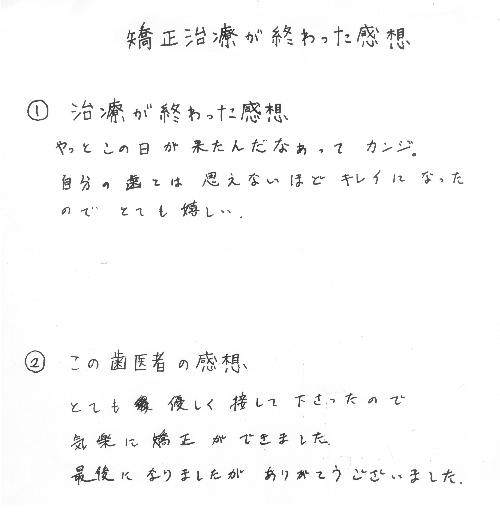 矯正治療が終わった感想
① 治療が終わった感想
やっとこの日が来たんだなあって カンジ。
自分の歯とは 思えないほど キレイに なった
ので とても 嬉しい.
② この歯医者の感想
とても 優しく 接して 下さったので
気楽に 矯正 ができました
最後に なりましたが ありがとうございました.